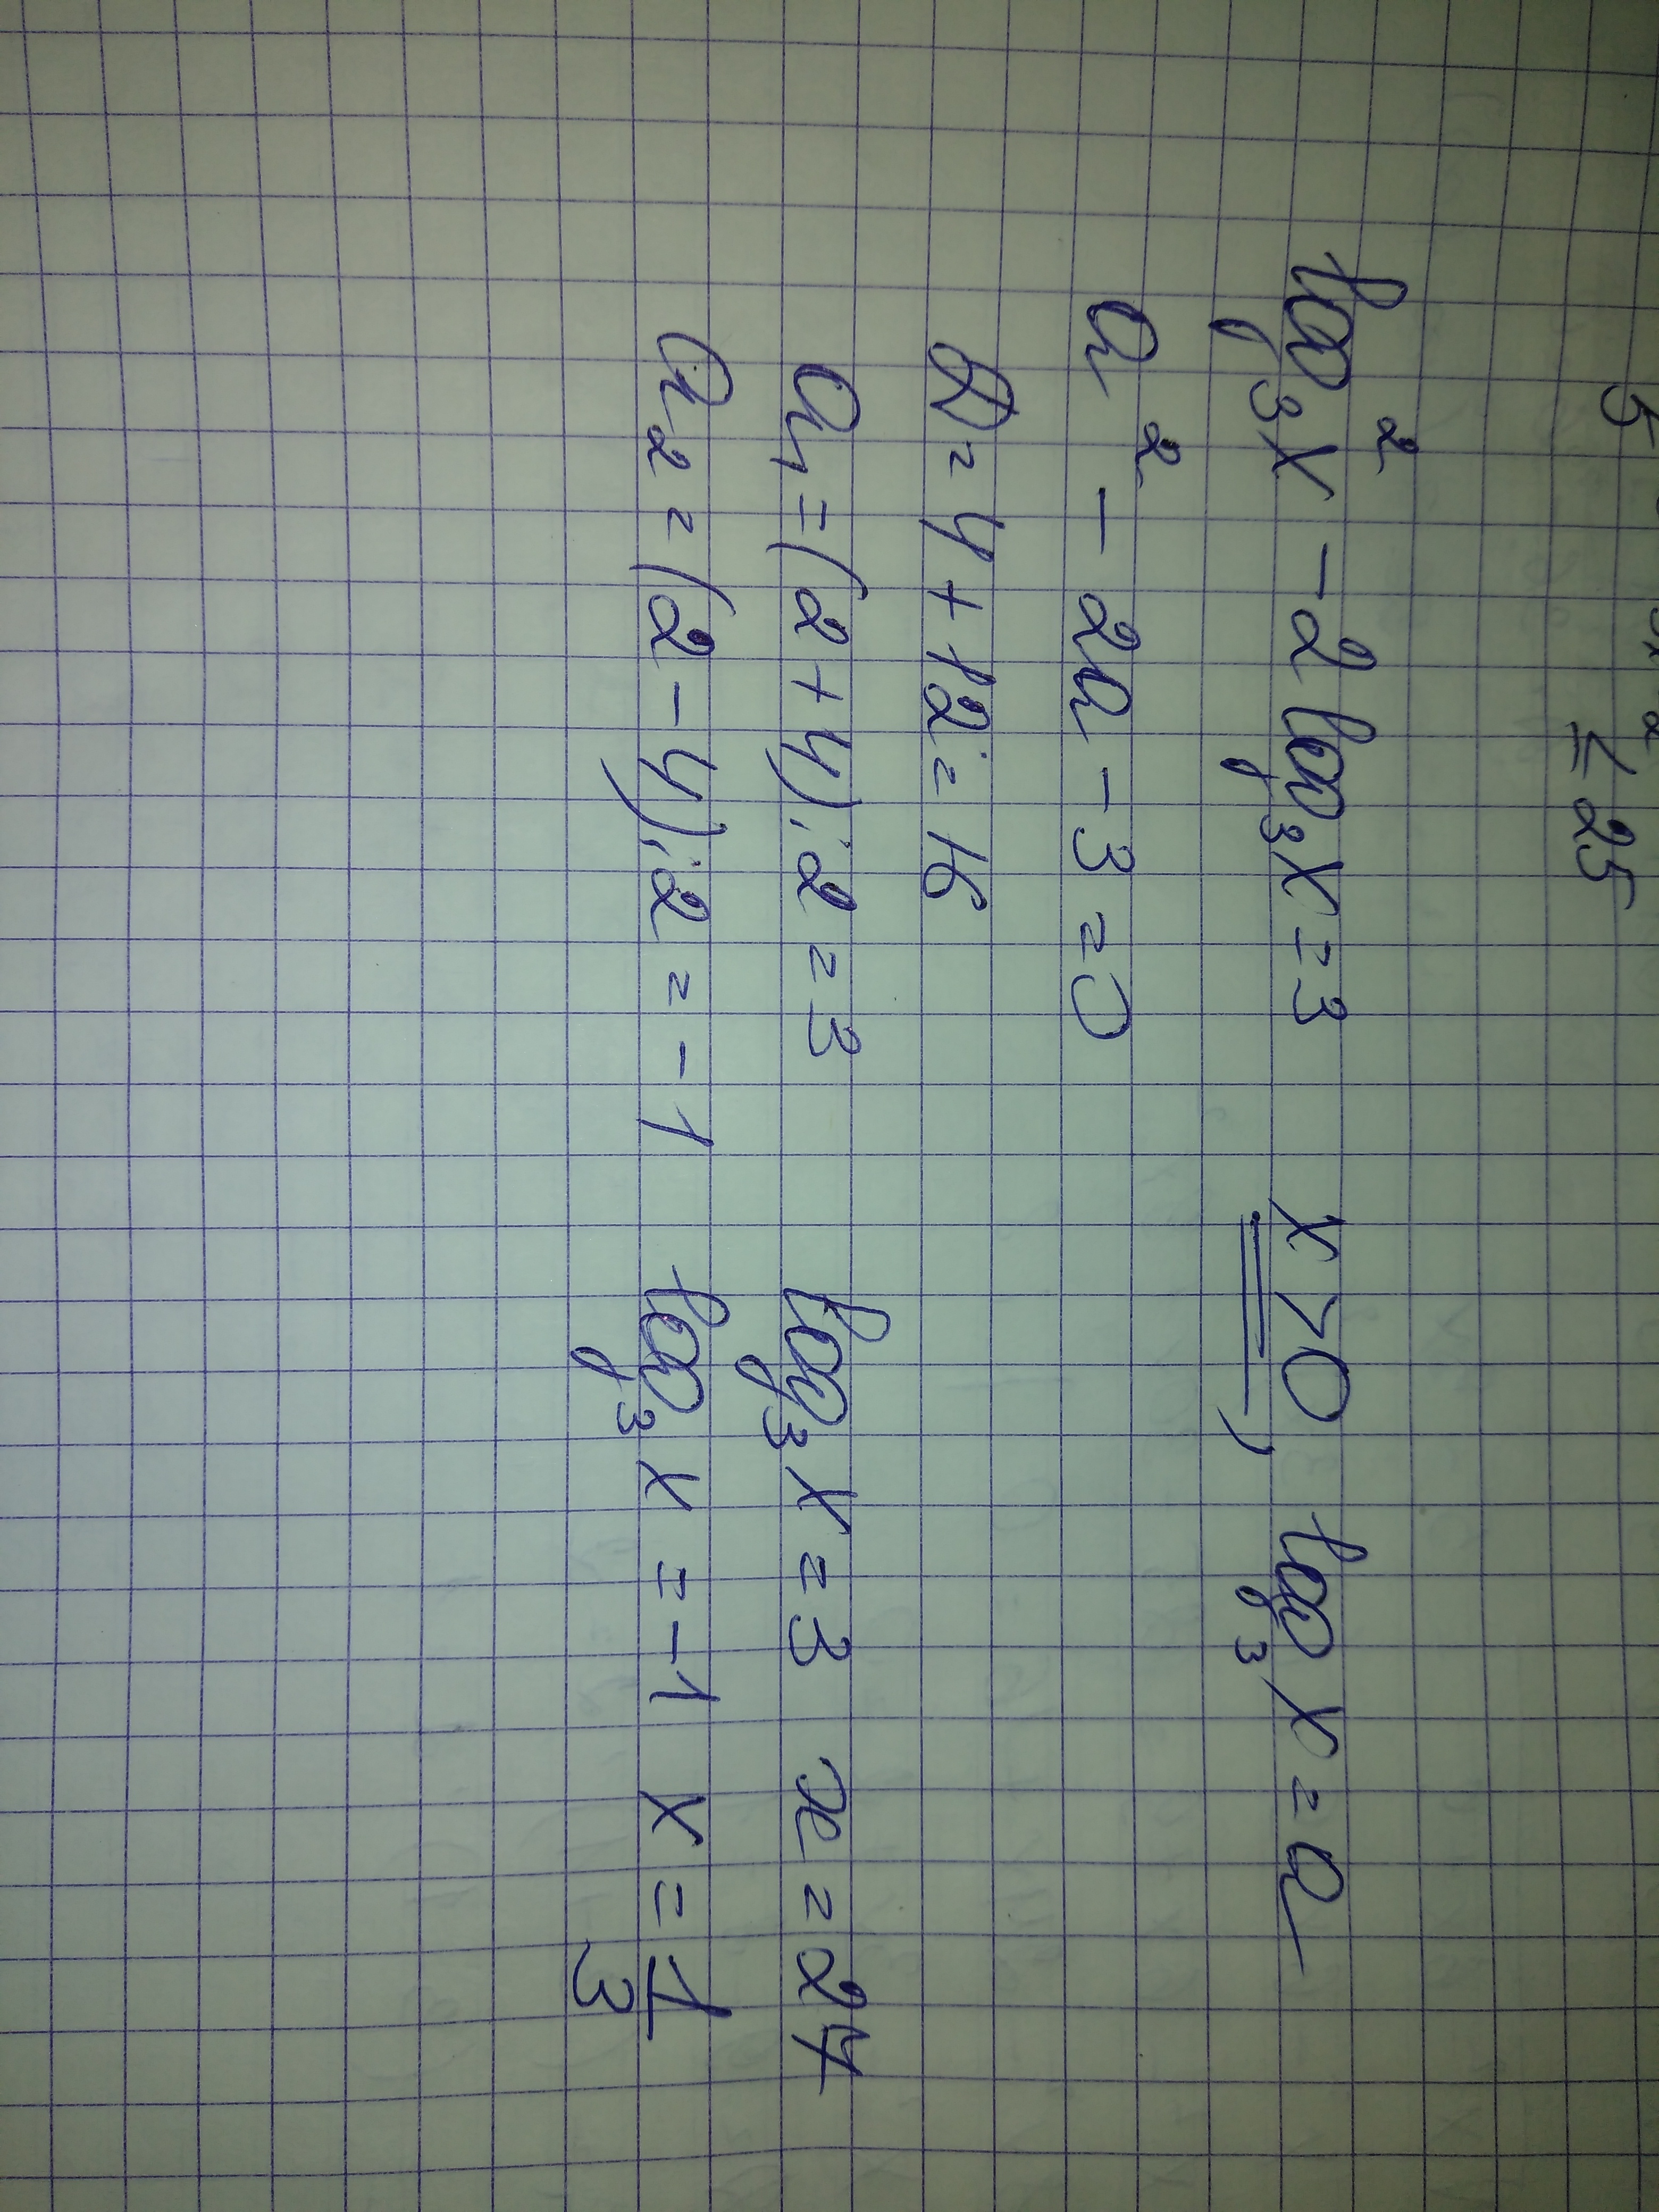 5 ≤ 25
log₃²x - 2log₃x = 3 x > 0, log₃x = a
a² - 2a - 3 = 0
D = 4 + 12 = 16
a₁ = (2 + 4) : 2 = 3 log₃x = 3 x = 27
a₂ = (2 - 4) : 2 = -1 log₃x = -1 x = 1/3